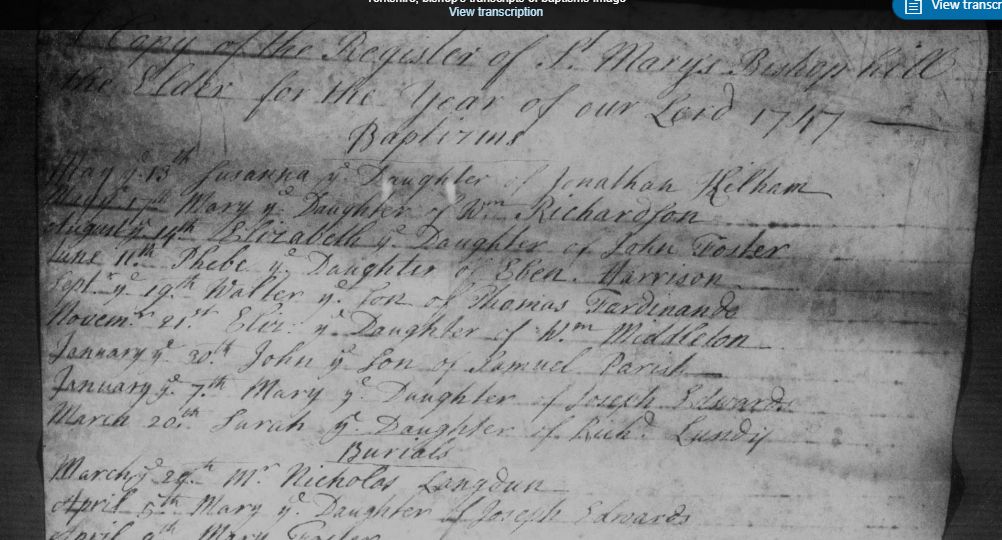 Yorkshire, bishop's transcripts of baptisms image
View transcription
View transcr
A Copy of the Register of St. Marys Bishop hill
the Elder for the Year of our Lord 1747
Baptizms
May ye. 13th Susanna ye. Daughter of Jonathan Kilham
17th Mary ye. Daughter of Wm Richardson
August ye 14th Elizabeth ye. Daughter of John Foster
June 11th Phebe ye. Daughter of Eben. Harrison
Sept. ye. 19th Walter ye. Son of Thomas Ferdinando
Novemr. 21st Eliz: ye. Daughter of Wm Middleton
January ye. 30th John ye Son of Samuel Parish
January ye. 7th Mary ye Daughter of Joseph Edwards
March 20th Sarah ye. Daughter of Richd. Lundy
Burials
March ye 29th Mr. Nicholas Langdun
April 5th Mary ye. Daughter of Joseph Edwards
April 9th Mary